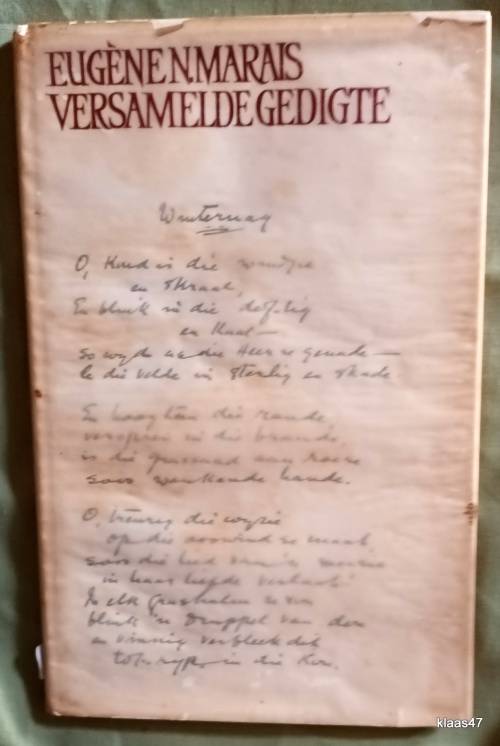 EUGÈNE N. MARAIS
VERSAMELDE GEDIGTE
Winternag
O, Koud is die windjie
en skraal,
En blink in die dof-lig
en Kaal —
So wyd as die Heer se genade —
le die velde in sterlig en skade
En hoog teen die rande,
versprei in die brande,
is die grassaad aan roere
soos wenkende hande.
O, treurig die wysie
op die ooswind se maat,
soos die lied van 'n meisie
in haar liefde verlaat.
In elk grashalm se vou
blink 'n druppel van dou
en vinnig verbleek dit
tot ryp, in die kou.
klaas47